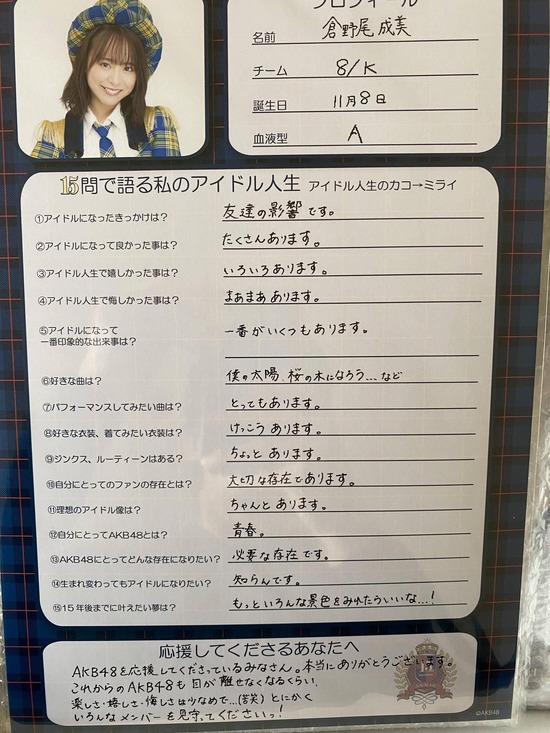 プロフィール
名前 倉野尾 成美
チーム 8/K
誕生日 11月8日
血液型 A
15問で語る私のアイドル人生 アイドル人生のカコ→ミライ
①アイドルになったきっかけは? 友達の影響です。
②アイドルになって良かった事は? たくさんあります。
③アイドル人生で嬉しかった事は? いろいろあります。
④アイドル人生で悔しかった事は? まあまああります。
⑤アイドルになって
一番印象的な出来事は? 一番がいくつもあります。
⑥好きな曲は? 僕の太陽、桜の木になろう...など
⑦パフォーマンスしてみたい曲は? とってもあります。
⑧好きな衣装、着てみたい衣装は? けっこうあります。
⑨ジンクス、ルーティーンはある? ちょっとあります。
⑩自分にとってのファンの存在とは? 大切な存在であります。
⑪理想のアイドル像は? ちゃんとあります。
⑫自分にとってAKB48とは? 青春。
⑬AKB48にとってどんな存在になりたい? 必要な存在です。
⑭生まれ変わってもアイドルになりたい? 知らんです。
⑮15年後までに叶えたい夢は? もっといろんな景色をみれたらいいな...!
応援してくださるあなたへ
AKB48を応援してくださっているみなさん。本当にありがとうございます。
これからのAKB48も目が離せなくなるくらい、
楽しさ・嬉しさ・悔しさは少なめで...(苦笑)とにかく
いろんなメンバーを見守ってくださいっ!
©AKB48